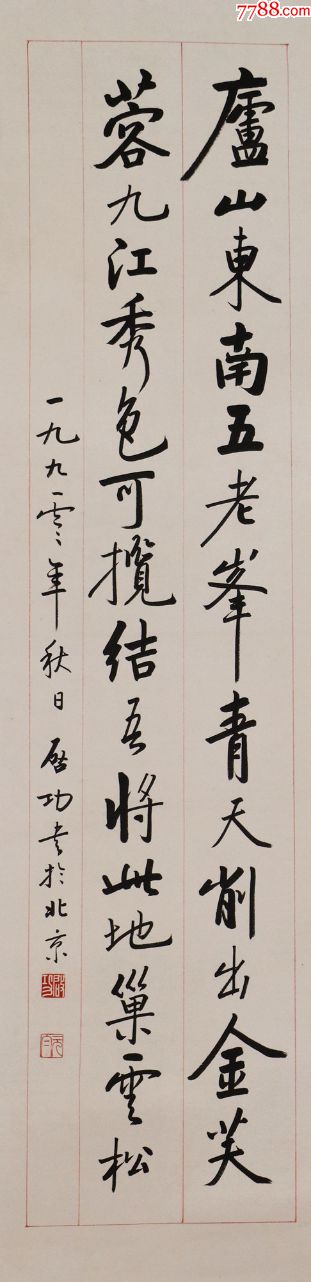 7788.com
廬山東南五老峯青天削出金芙
蓉九江秀色可攬結吾將此地巢雲松
一九九零年秋日啟功書於北京
啟功
元白